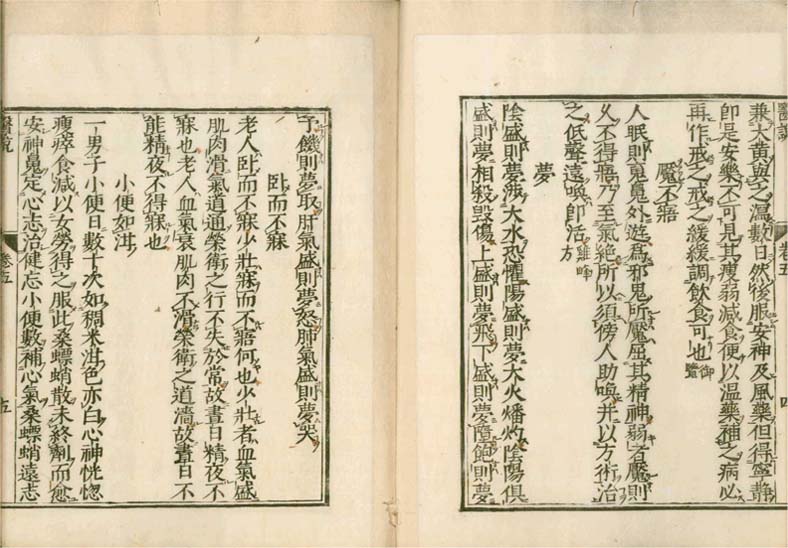 兼大黄與之瀉數日然後服安神及風藥但得寧靜
即是安樂不可見其瘦弱減食便以温藥補之病必
再作戒之戒之緩緩調飲食可也 御覽
魘不寤
人眠則魂鬼外遊爲邪鬼所魘屈其精神弱者魘則
久不得寤乃至氣絶所以須傍人助喚并以方術治
之低聲遠喚即活 雞峰方
夢
陰盛則夢涉大水恐懼陽盛則夢大火燔灼陰陽俱
盛則夢相殺毀傷上盛則夢飛下盛則夢墮飽則夢
醫説 卷五 四
予饑則夢取肝氣盛則夢怒肺氣盛則夢哭
卧而不寐
老人卧而不寐少壯寐而不寤何也少壯者血氣盛
肌肉滑氣道通榮衛之行不失於常故晝日精夜不
寐也老人血氣衰肌肉不滑榮衛之道濇故晝日不
能精夜不得寐也
小便如泔
一男子小便日數十次如稠米泔色亦白心神恍惚
瘦瘁食減以女勞得之服此桑螵蛸散未終劑而愈
安神鬼定心志治健忘小便數補心氣桑螵蛸遠志
醫説 卷五 五